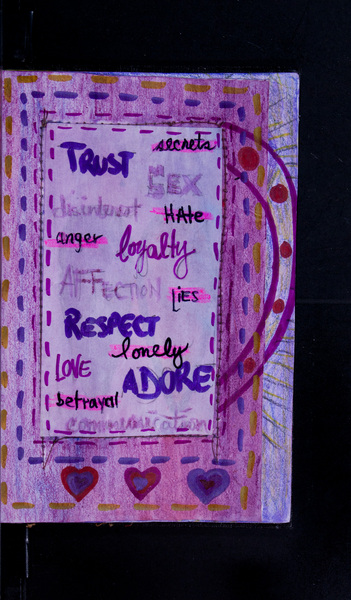 secrets
TRUST
SEX
disinterest HAte
anger loyalty
AFFECTION
LiES
RESPECT
lonely
LOVE
ADORE
betrayal
communication